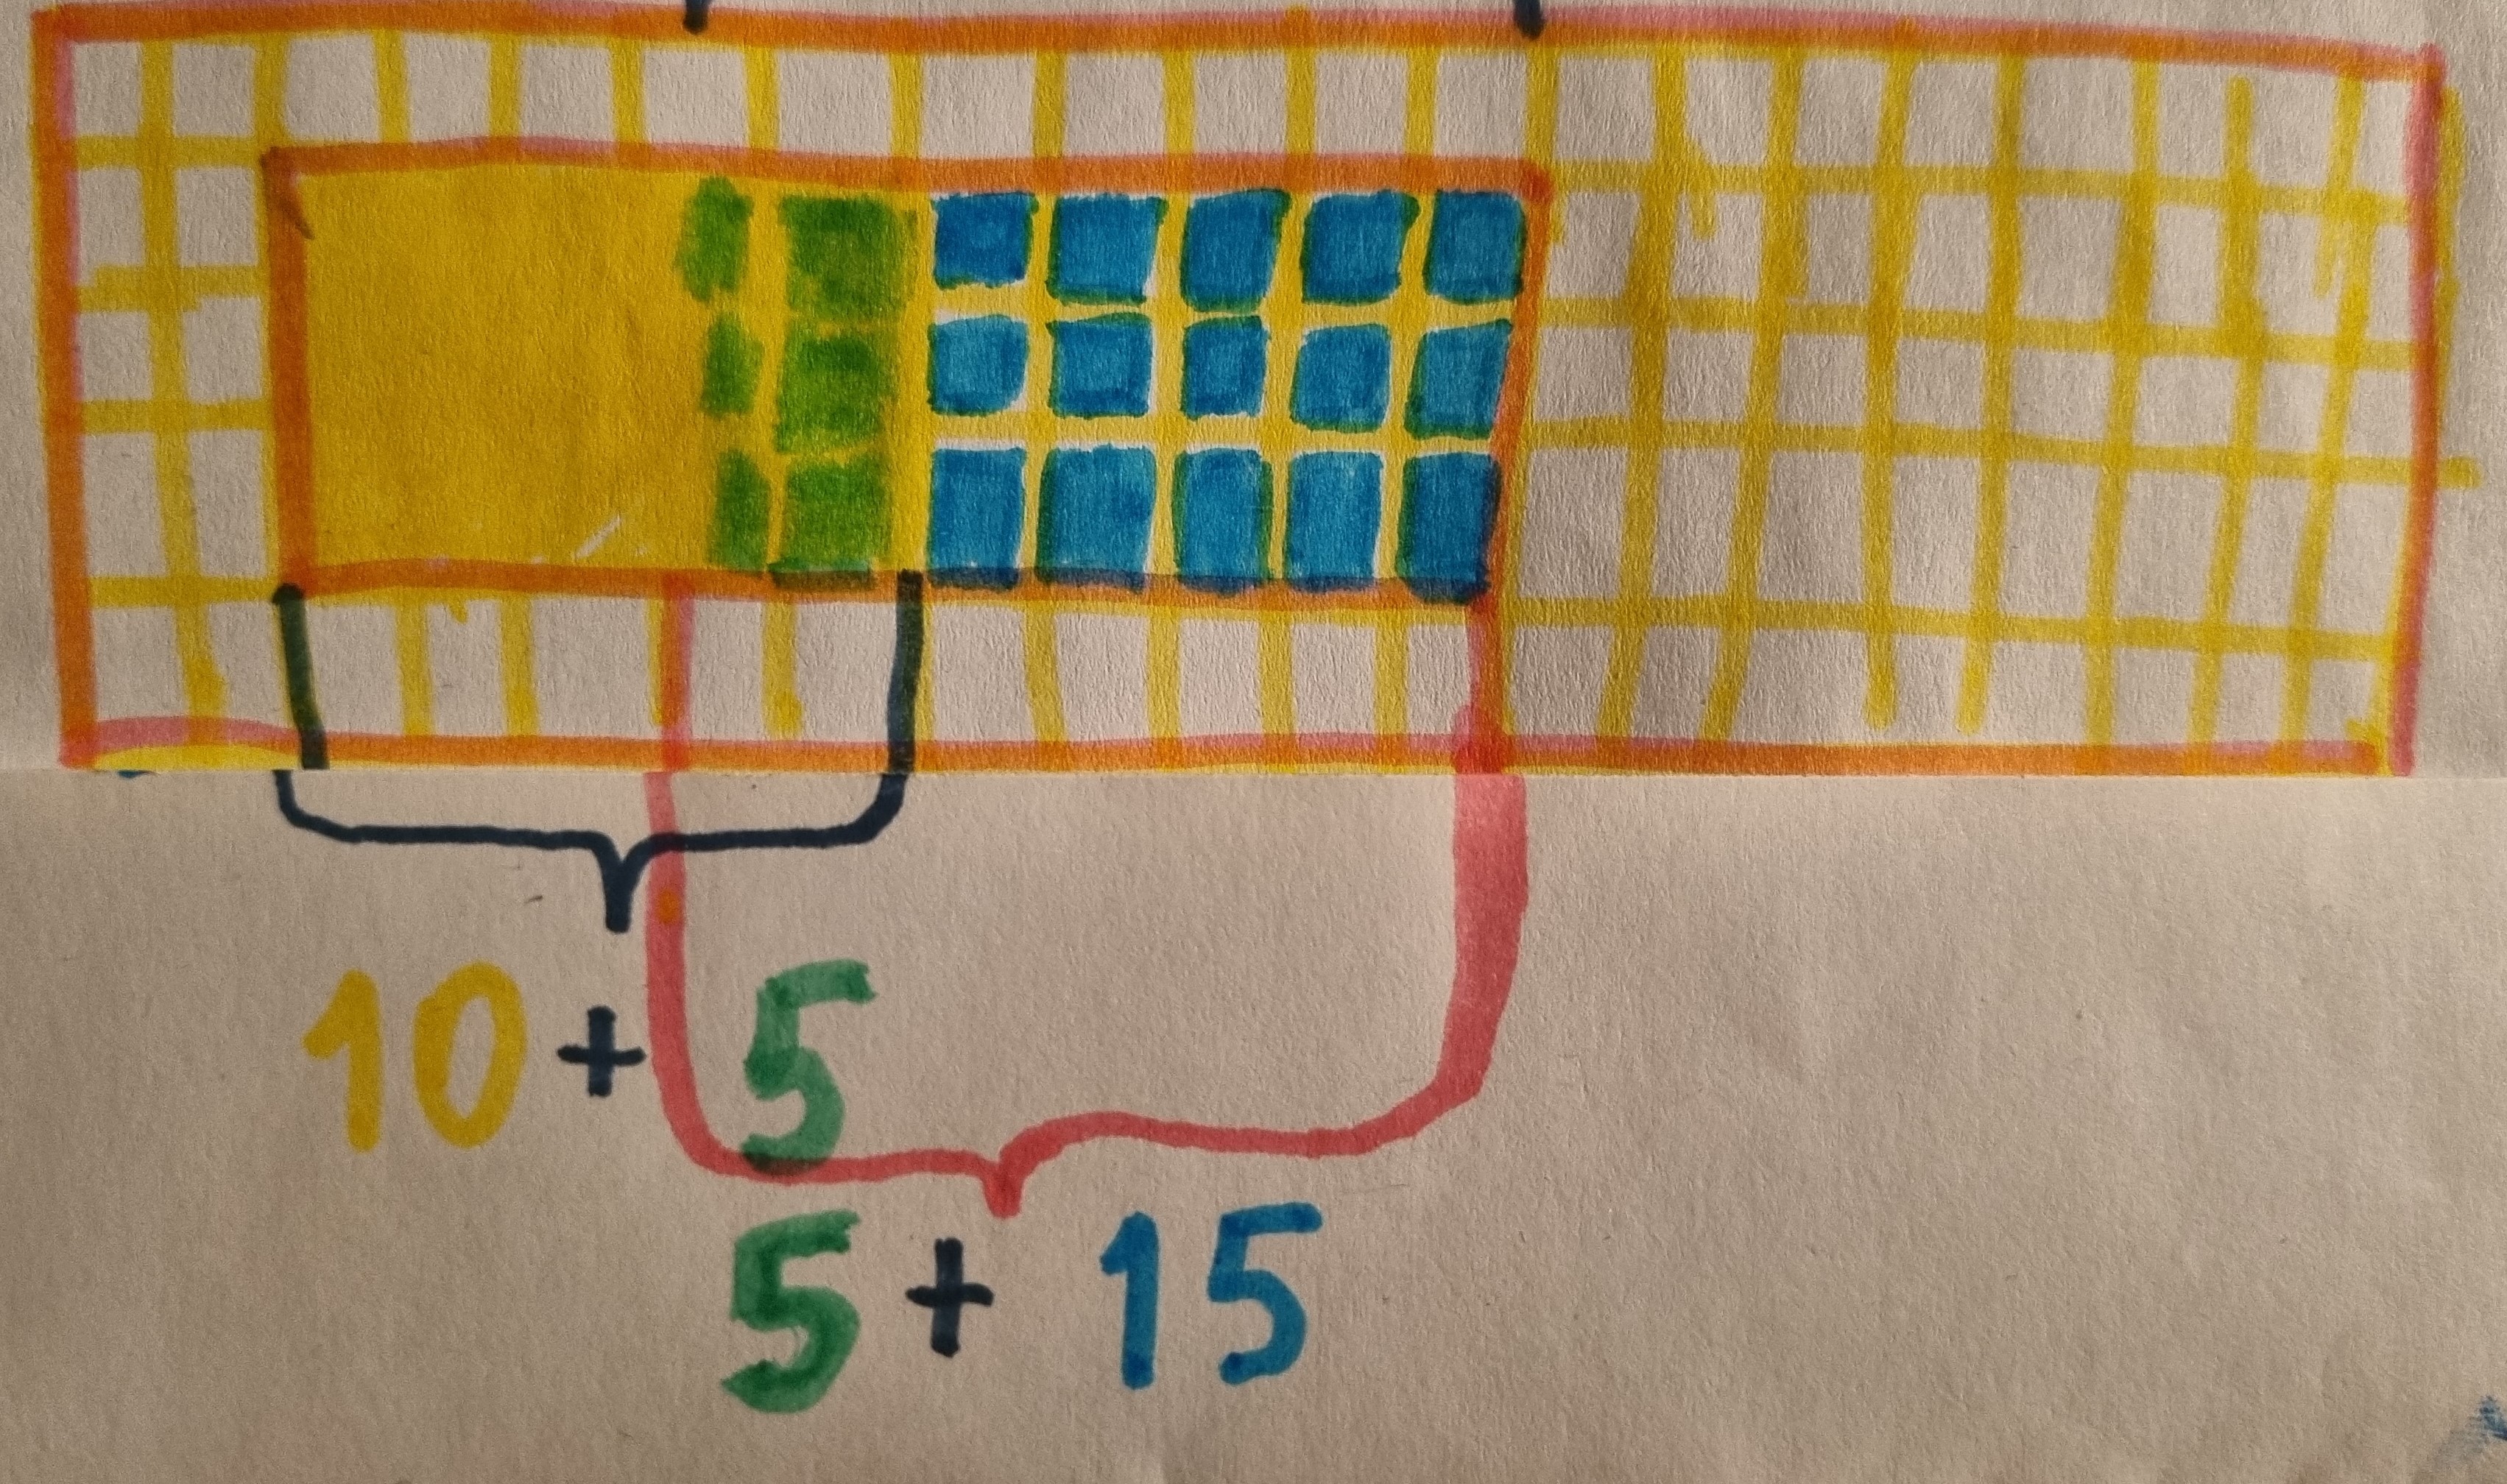 10 + 5
5 + 15